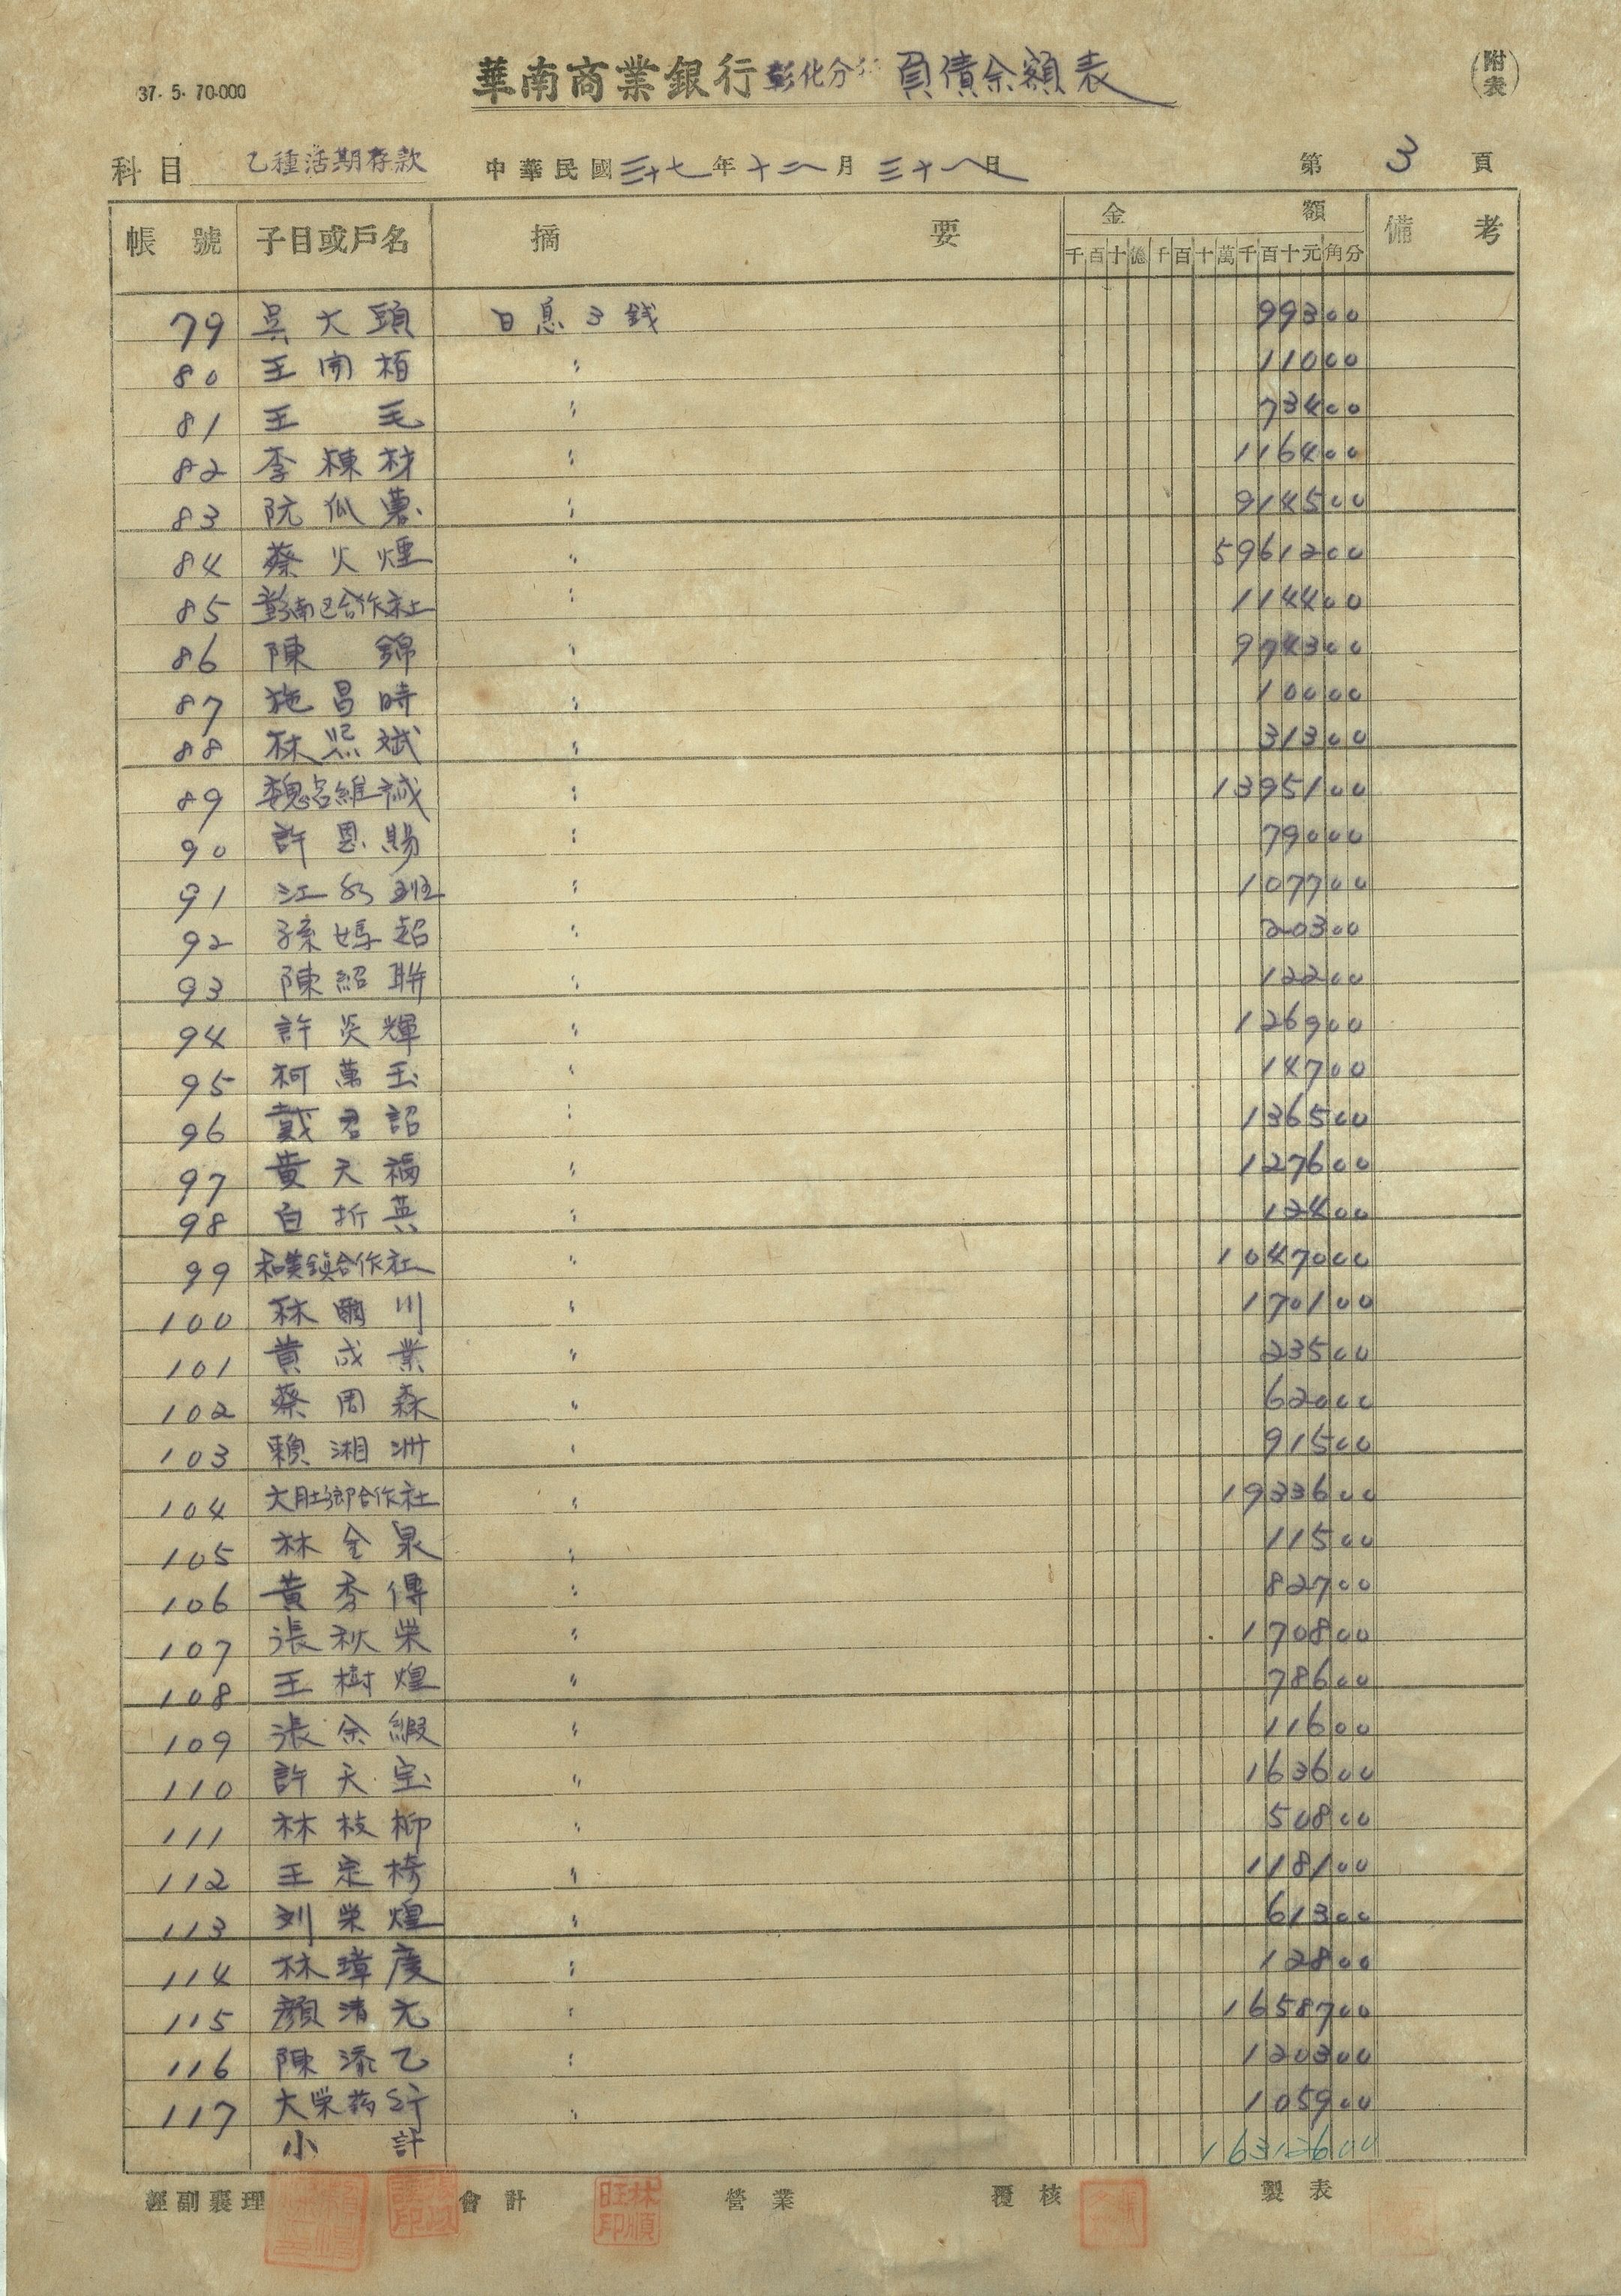 37. 5. 70.000
華南商業銀行彰化分行 負債余額表
(附表)
科目 乙種活期存款 中華民國三十七年十二月三十一日 第3頁
帳號 子目或戶名 摘要 金額 備考
千百十億千百十萬千百十元角分
79 吳大頭 日息3錢 99300
80 王開栢 〃 11000
81 王毛 〃 73400
82 李棟材 〃 116400
83 阮瓜薯 〃 914500
84 蔡火煙 〃 5961200
85 彰南区合作社 〃 114400
86 陳錦 〃 974300
87 施昌時 〃 10000
88 林照斌 〃 31300
89 魏呂維誠 〃 1395100
90 許恩賜 〃 79000
91 江 班 〃 107700
92 孫媽超 〃 20300
93 陳紹聯 〃 12200
94 許炎輝 〃 126900
95 柯萬玉 〃 14700
96 戴君詔 〃 136500
97 黃天福 〃 127600
98 白折英 〃 12400
99 和美鎮合作社 〃 1047000
100 林爾川 〃 170100
101 黃成業 〃 23500
102 蔡周森 〃 62000
103 賴湘洲 〃 91500
104 大肚鄉合作社 〃 1933600
105 林金泉 〃 11500
106 黃秀傳 〃 82700
107 張秋栄 〃 170800
108 王樹煌 〃 78600
109 張余緞 〃 11600
110 許天宝 〃 163600
111 林枝柳 〃 50800
112 王定椅 〃 118100
113 刘栄煌 〃 61300
114 林璋度 〃 12800
115 顏清元 〃 1658700
116 陳添乙 〃 120300
117 大栄葯行 〃 105900
小計 16312600
經副襄理 會計 營業 覆核 製表
林順旺印